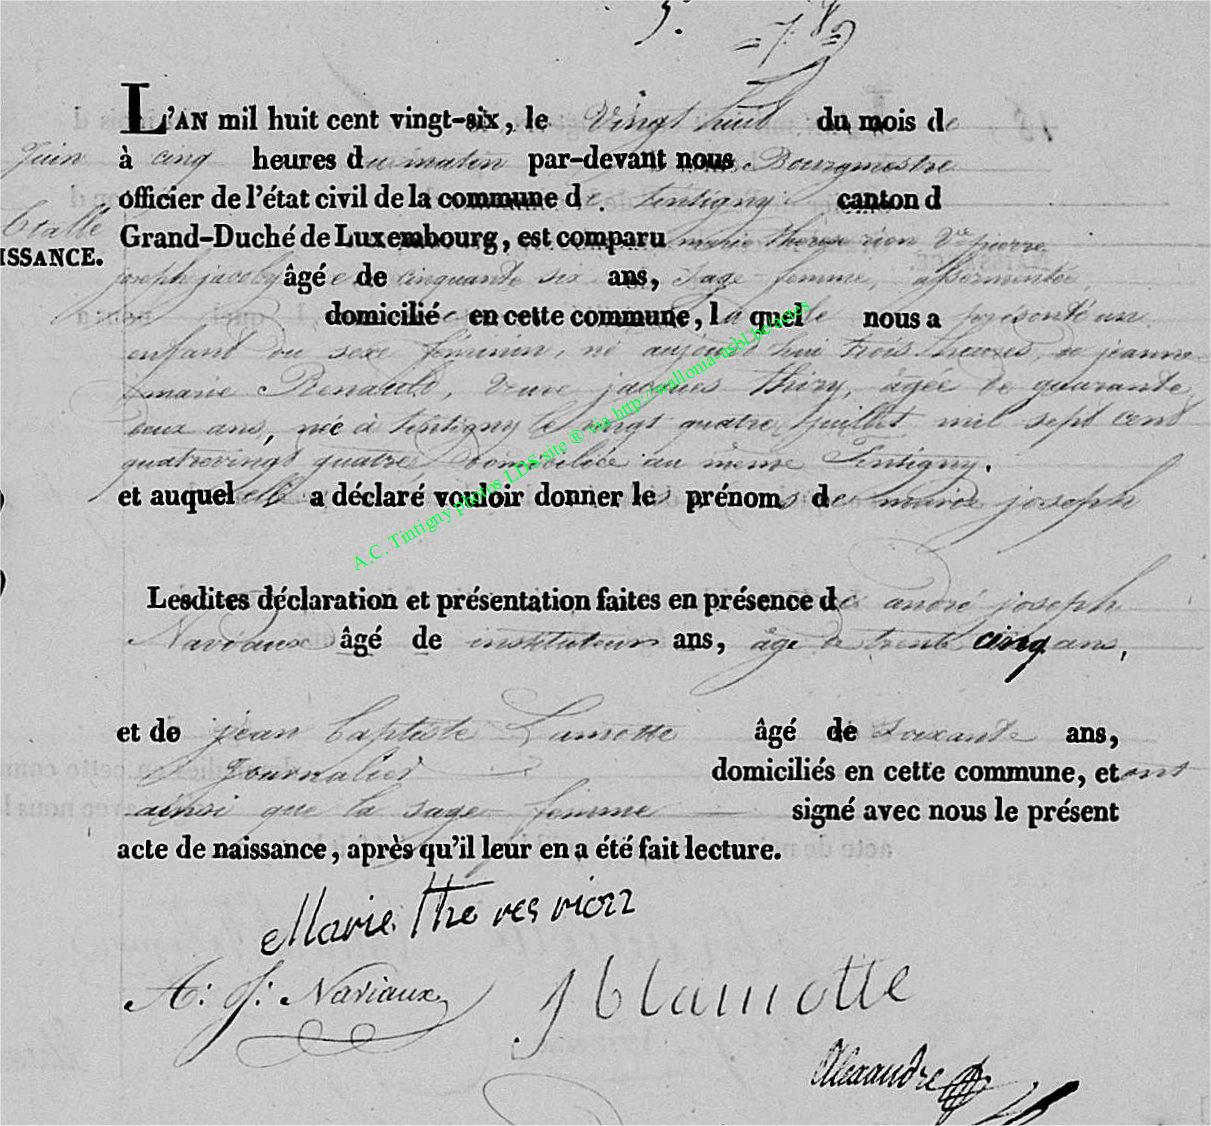 L'AN mil huit cent vingt-six, le Vingt huit du mois de
Juin à cinq heures du matin par-devant nous Bourgmestre
officier de l'état civil de la commune de Tintigny canton d
Etalle
Grand-Duché de Luxembourg, est comparu marie therese rion Ve pierre
ISSANCE.
joseph jacoby âgée de cinquante six ans, sage femme, assermentée
domicilié en cette commune, la quelle nous a présenté un
enfant du sexe féminin, né aujourd'hui trois heures, de jeanne
marie Renauld, veuve jacques thiry, âgée de quarante
deux ans, née à tintigny le vingt quatre juillet mil sept cent
quatrevingt quatre domiciliée au même Tintigny.
et auquel elle a déclaré vouloir donner les prénoms de marie joseph
Lesdites déclaration et présentation faites en présence de andré joseph
Naviaux âgé de instituteur ans, âgé de trente cinq ans,
et de jean baptiste Lamotte âgé de soixante ans,
Journalier domiciliés en cette commune, et ont
ainsi que la sage femme signé avec nous le présent
acte de naissance, après qu'il leur en a été fait lecture.
Marie Theres rion
A: J: Naviaux
J b lamotte
Alexandre
A.C. Tintigny photos LDS site ® via http://wallonia-asbl.be/actes